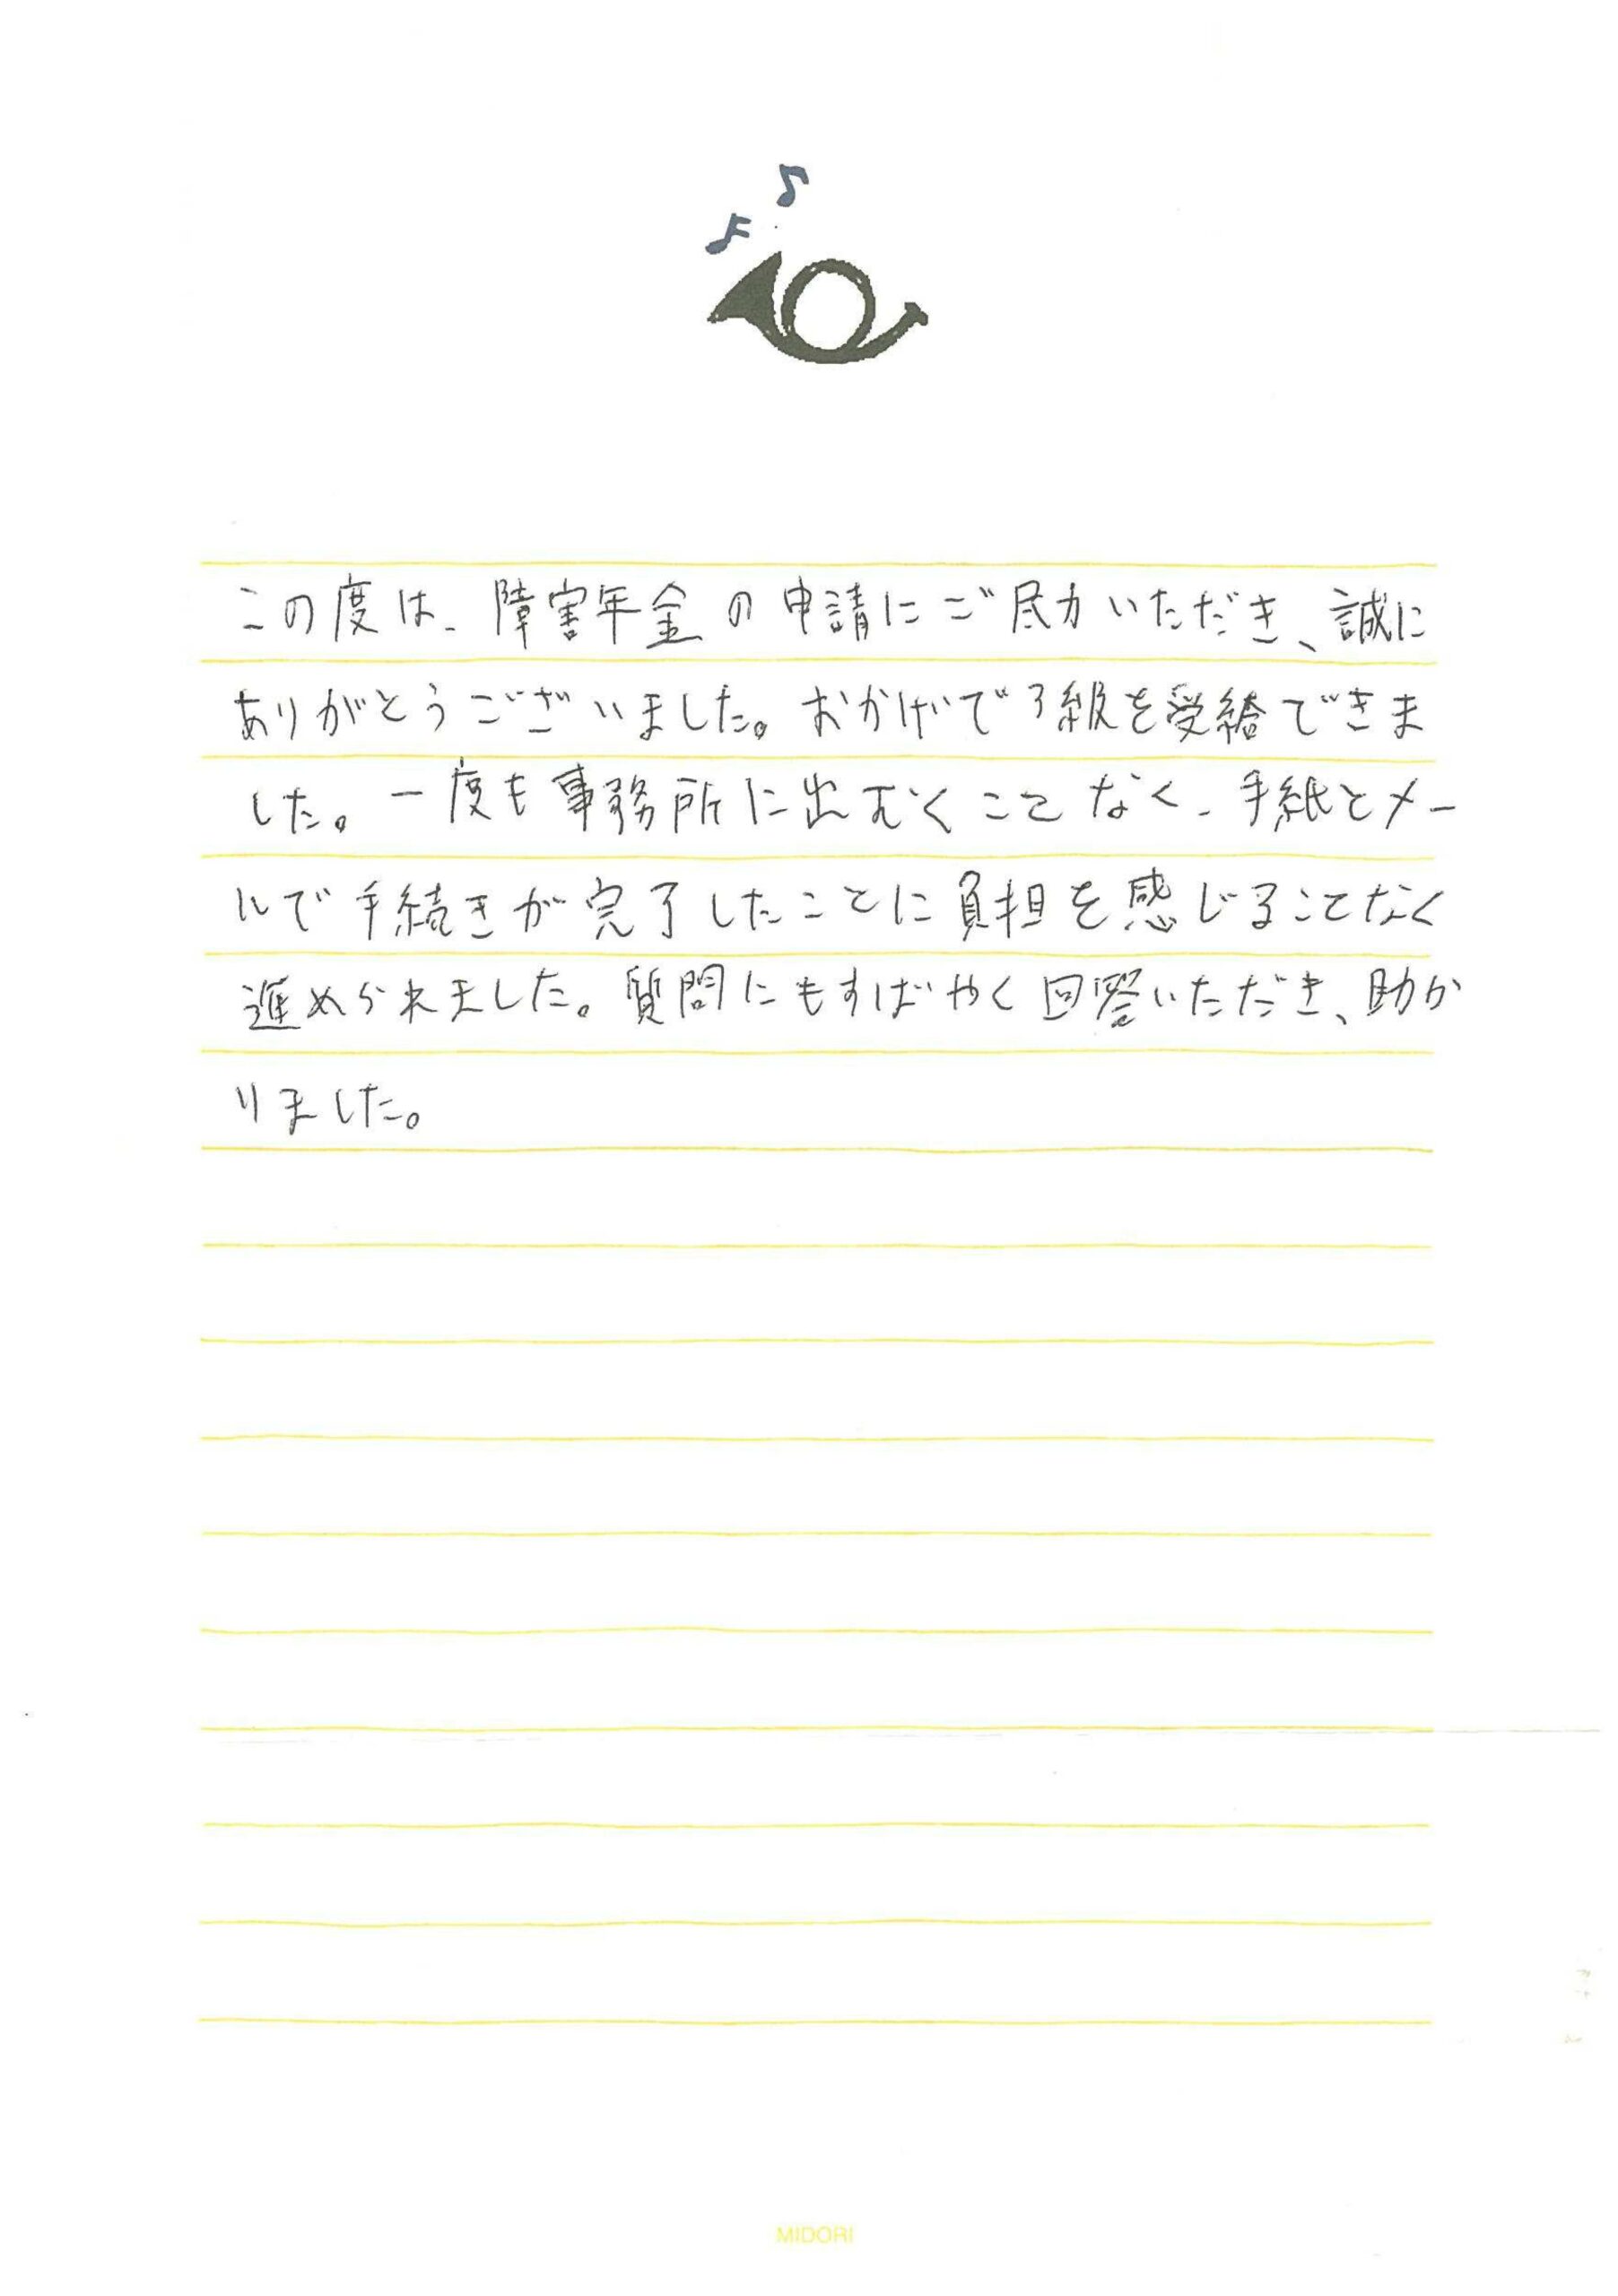 この度は、障害年金の申請にご尽力いただき、誠に
ありがとうございました。おかげで3級を受給できま
した。一度も事務所に出むくことなく、手紙とメー
ルで手続きが完了したことに負担を感じることなく
進められました。質問にもすばやく回答いただき、助か
りました。
MIDORI